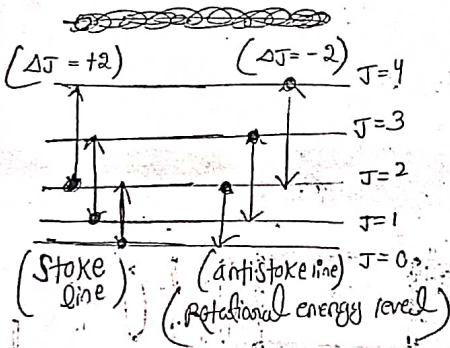 (ΔJ = +2) (ΔJ = -2)
J=4
J=3
J=2
J=1
J=0
(Stoke line) (antistoke line)
(Rotational energy level)